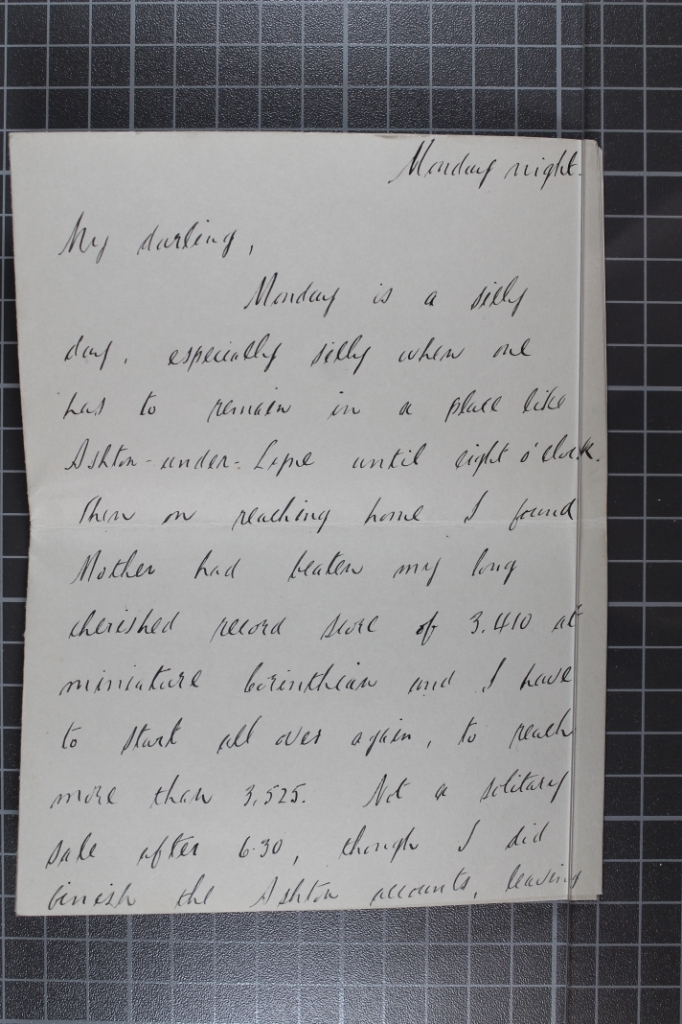 Monday night.
My darling,
Monday is a silly
day, especially silly when one
has to remain in a place like
Ashton-under-Lyne until eight o'clock.
Then on reaching home I found
Mother had beaten my long
cherished record score of 3.410 at
miniature Corinthian and I have
to start all over again, to reach
more than 3,525. Not a solitary
sale after 6.30, though I did
finish the Ashton accounts, leaving